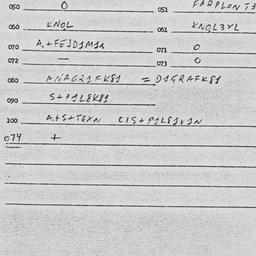 050 O 051 FARPLON T3
060 KNOL 061 KNOL3YL
070 A.+FEJD1M1A 071 O
072 — 073 O
080 ANAG21FK81 = D1GRAFK81
090 S+P1L8K81
100 A.+S+TEXN CIS+P1L81V1N
074 +